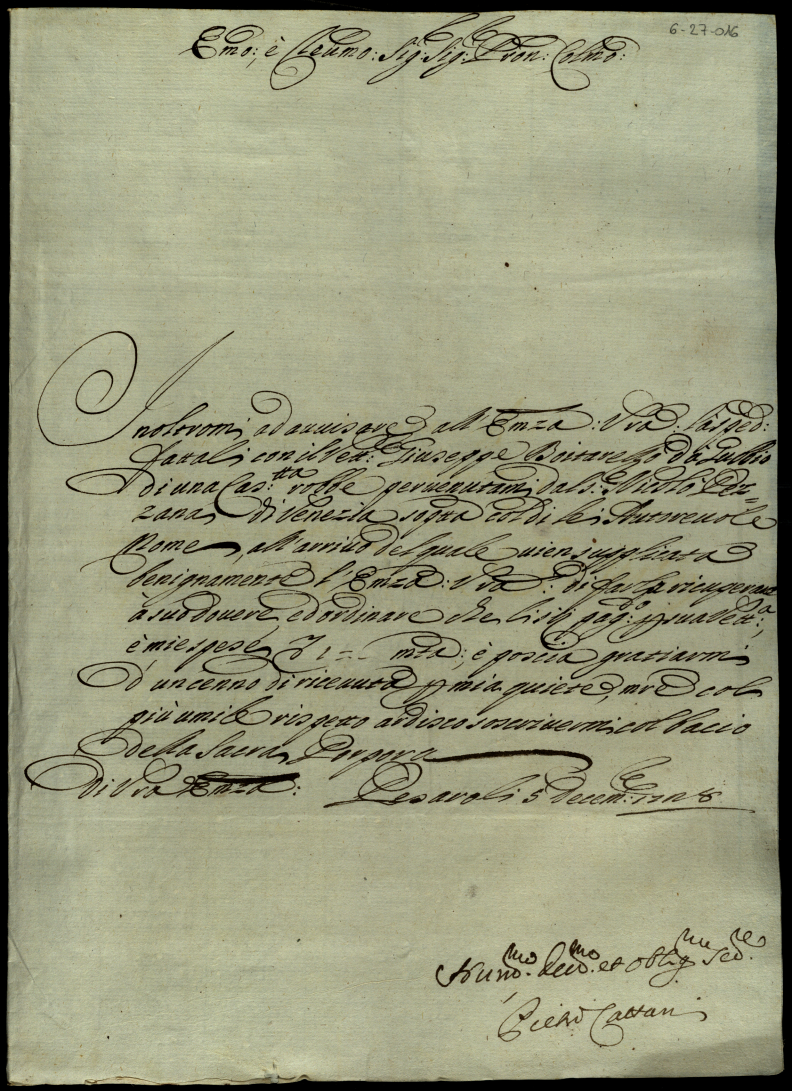 6-27-016
Emo: è Reumo: Sig: Sig: Pron: Colmo:
Inoltromi ad auuisare all' Emza: Vra: la sped:
fattali con il Vett: Giuseppe da Gubbio
di una Cas:tta robbe peruenutami dal S: Nicolò Pez=
zana di Venezia sotto col di le Autoreuole
Nome, all' arriuo del quale uien supplicata
benignamente l' Emza: Vra: di farla ricuperare
à suo douere, ed ordinare che li sij pag: sua Vett:a,
è mie spese mta: è poscia gratiarmi
d' un cenno di riceuuta p mia quiete, mre col
più umile rispetto ardisco soscriuermi col bacio
della Sacra Porpora
di Vra Emza: Pesaro li 5 Decem:
Humo: deuo: et obligmo Sere:
Pietro Cattani